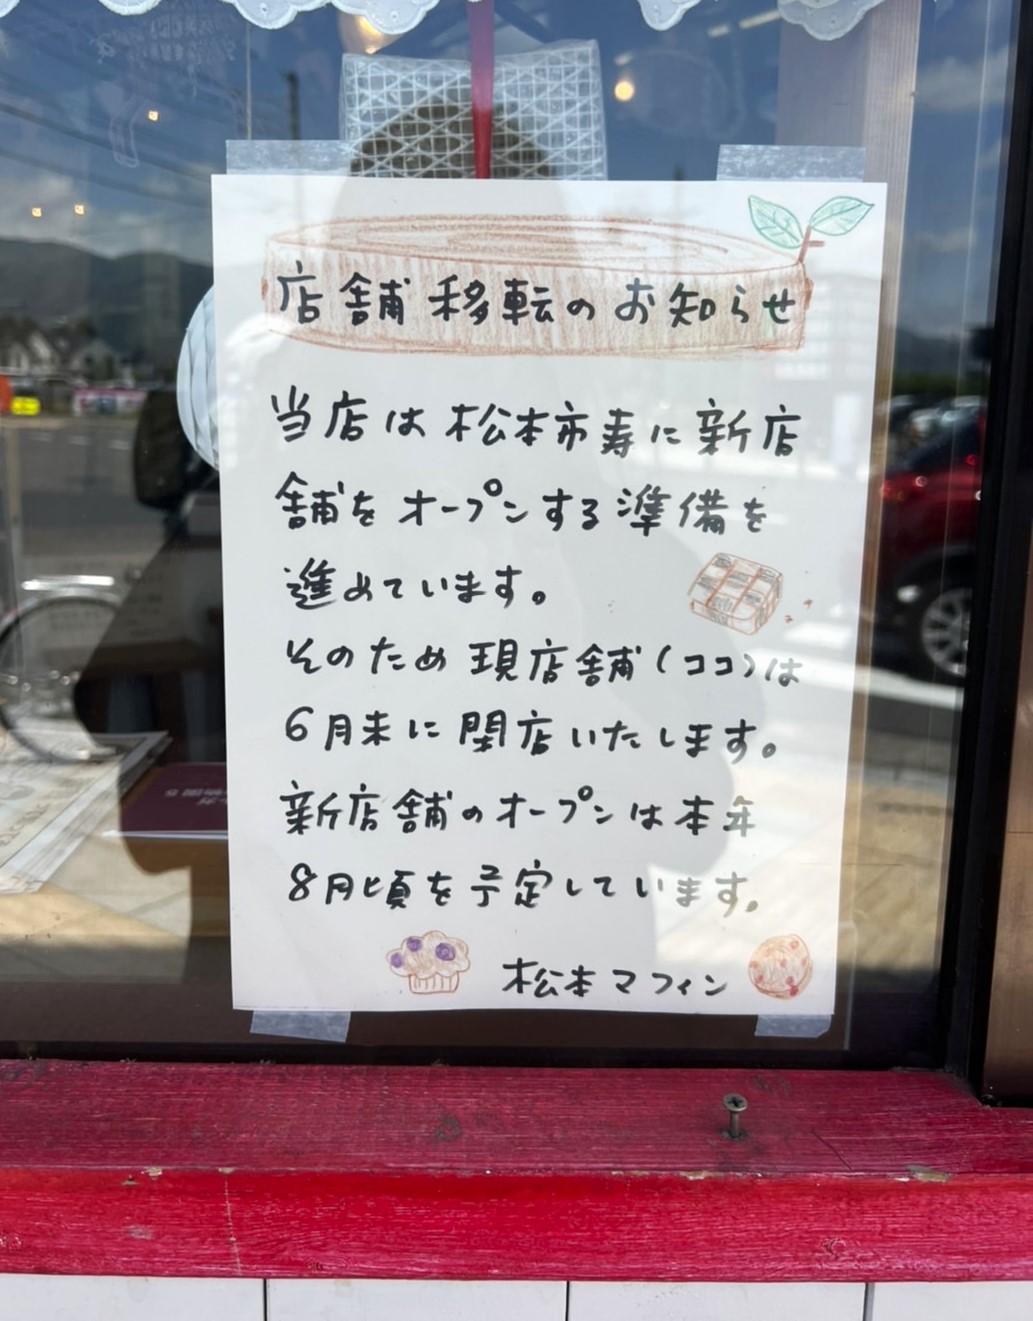 店舗移転のお知らせ
当店は松本市寿に新店
舗をオープンする準備を
進めています。
そのため現店舗(ココ)は
6月末に閉店いたします。
新店舗のオープンは本年
8月頃を予定しています。
松本マフィン